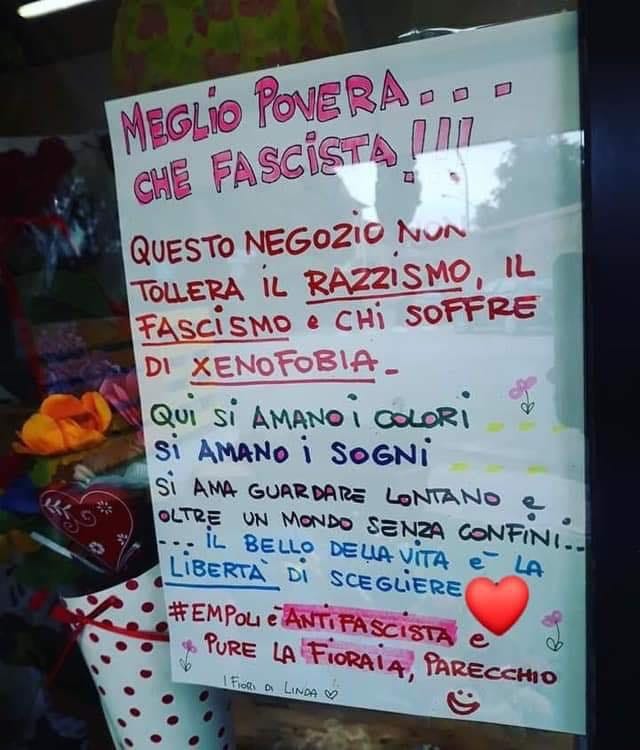 MEGLIO POVERA....
CHE FASCISTA!!!
QUESTO NEGOZIO NON
TOLLERA IL RAZZISMO, IL
FASCISMO e CHI SOFFRE
DI XENOFOBIA_
QUI SI AMANO I COLORI
SI AMANO I SOGNI
SI AMA GUARDARE LONTANO e
OLTRE UN MONDO SENZA CONFINI...
... IL BELLO DELLA VITA e' LA
LIBERTÀ DI SCEGLIERE
#EMPOLI e' ANTIFASCISTA e
PURE LA FIORAIA, PARECCHIO
I FIORI DI LINDA ♡